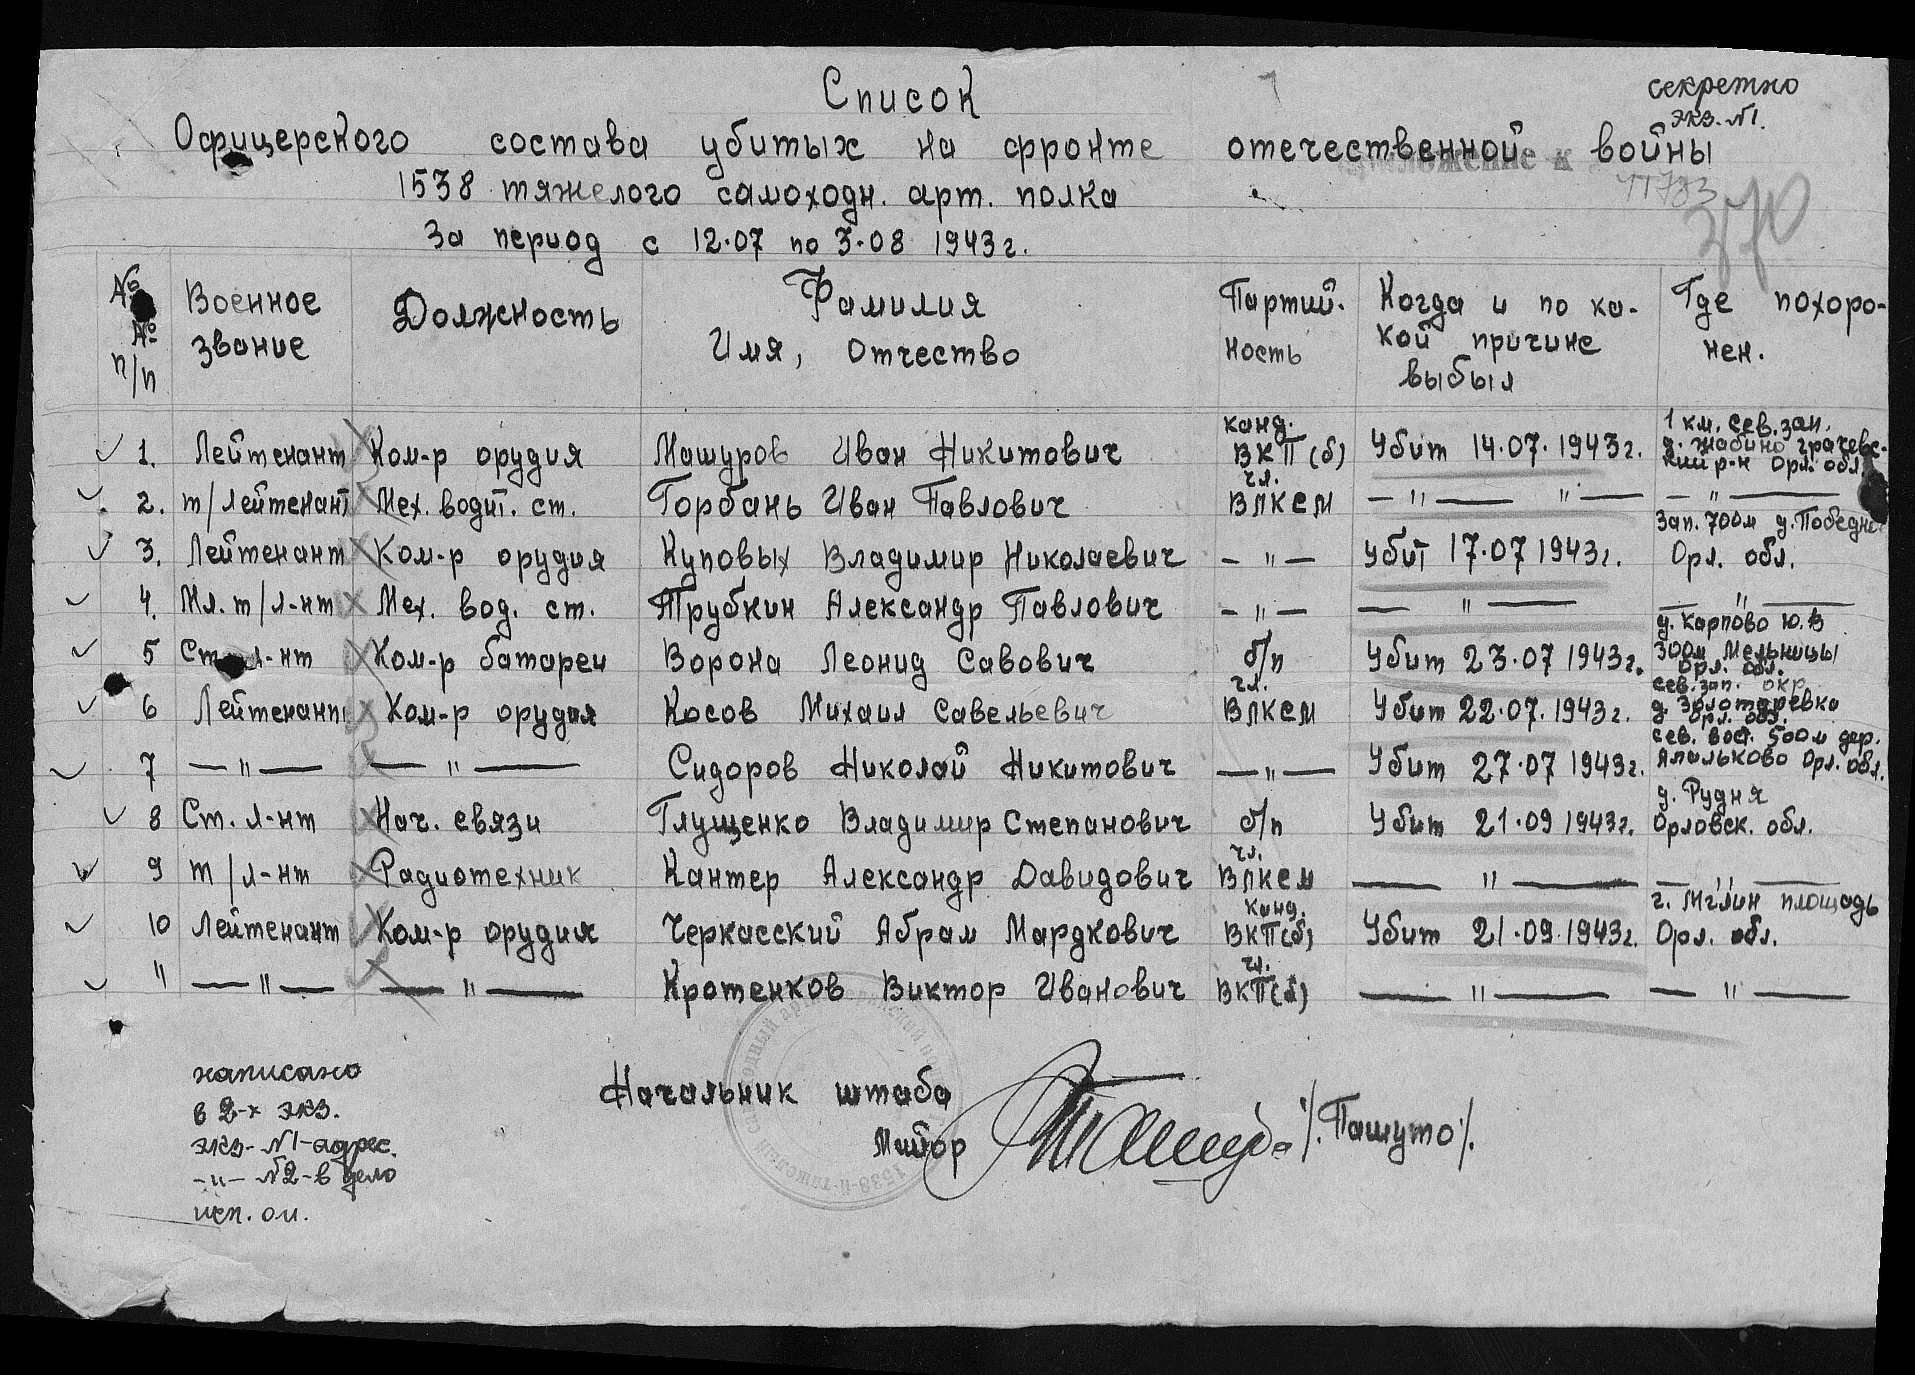 Список
секретно
экз. №1.
Офицерского состава убитых на фронте отечественной войны
1538 тяжелого самоходн. арт. полка
За период с 12.07 по 3.08 1943г.
370
№№ п/п Военное звание Должность Фамилия Имя, Отчество Партийность Когда и по какой причине выбыл Где похоронен.
1. Лейтенант Ком-р орудия Машуров Иван Никитович канд. ВКП(б) Убит 14.07.1943г. 1 км. сев. зап. д. Жабино Орл. обл.
2. т/лейтенант Мех. водит. ст. Горбань Иван Павлович чл. ВЛКСМ —"— "— —"—
3. Лейтенант Ком-р орудия Куповых Владимир Николаевич —"— Убит 17.07 1943г. Зап. 700м Орл. обл.
4. Мл. т/л-нт Мех. вод. ст. Трубкин Александр Павлович —"— —"— —"—
5 Ст. л-нт Ком-р батареи Ворона Леонид Савович б/п Убит 23.07 1943г. д. Карпово ю.в 300м Мельницы Орл. обл.
6 Лейтенант Ком-р орудия Косов Михаил Савельевич чл. ВЛКСМ Убит 22.07.1943г. сев. зап. окр. д. Золотаревка Орл. обл.
7 —"— —"— Сидоров Николай Никитович —"— Убит 27.07 1943г. сев. вост. 500м дер. Апальково Орл. обл.
8 Ст. л-нт Нач. связи Глущенко Владимир Степанович б/п Убит 21.09 1943г. д. Рудня Орловск. обл.
9 т/л-нт Радиотехник Кантер Александр Давидович чл. ВЛКСМ —"— —"—
10 Лейтенант Ком-р орудия Черкасский Абрам Мардкович канд. ВКП(б) Убит 21.09.1943г. г. Мглин площадь Орл. обл.
11 —"— —"— Кротенков Виктор Иванович чл. ВКП(б) —"— —"—
написано
в 2-х экз.
экз-№1-адрес.
-"- №2-в дело
исп. ом.
Начальник штаба
Майор /.Пашуто/.